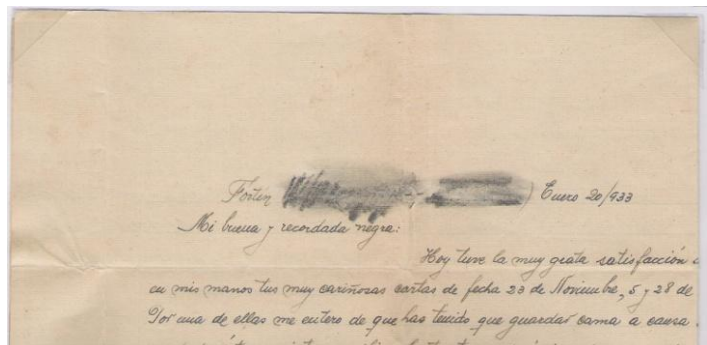 Fortín Enero 20/933
Mi buena y recordada negra:
Hoy tuve la muy grata satisfacción
en mis manos tus muy cariñosas cartas de fecha 23 de Noviembre, 5 y 28 de
Por una de ellas me entero de que has tenido que guardar cama a causa